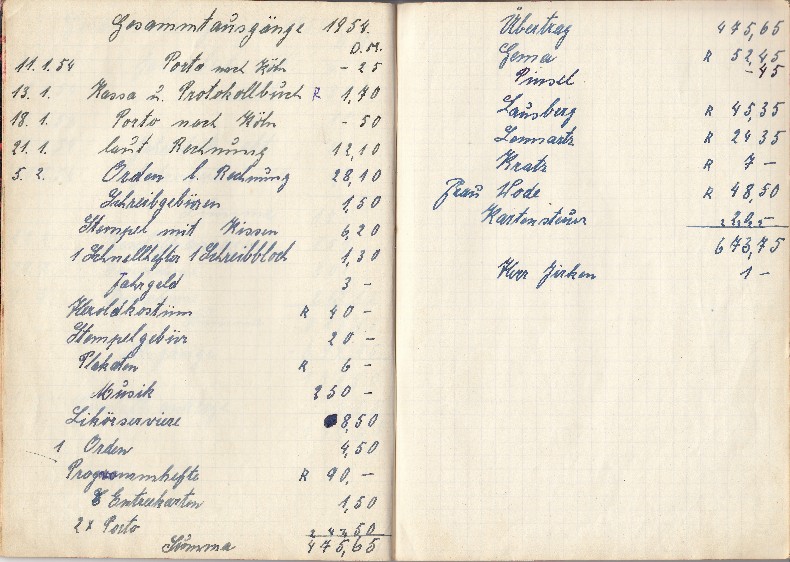 Gesammtausgänge 1954.
D.M.
11.1.54 Porto nach Köln - 25
13. 1. Kassa u. Protokollbuch R 1,70
18. 1. Porto nach Köln - 50
21. 1. laut Rechnung 12,10
5. 2. Orden l. Rechnung 28,10
Schreibgebüren 1,50
Stempel mit Kissen 6,20
1 Schnellhefter 1 Schreibbloch 1,30
Fahrgeld 3 -
Heroldkostüm R 40 -
Stempelgebür 20 -
Plakaten R 6 -
Musik 250 -
Likörserviere 8,50
1 Orden 4,50
Programmhefte R 90,-
Entreekarten 1,50
2 x Porto
Sümma 475,65
Übertrag 475,65
Gema R 52,45
Pinsel - 45
Lausberg R 45,35
Lennartz R 24 35
Kratz R 7 -
Frau Wode R 48,50
Kartensteuer
673,75
Herr Jirken 1 -